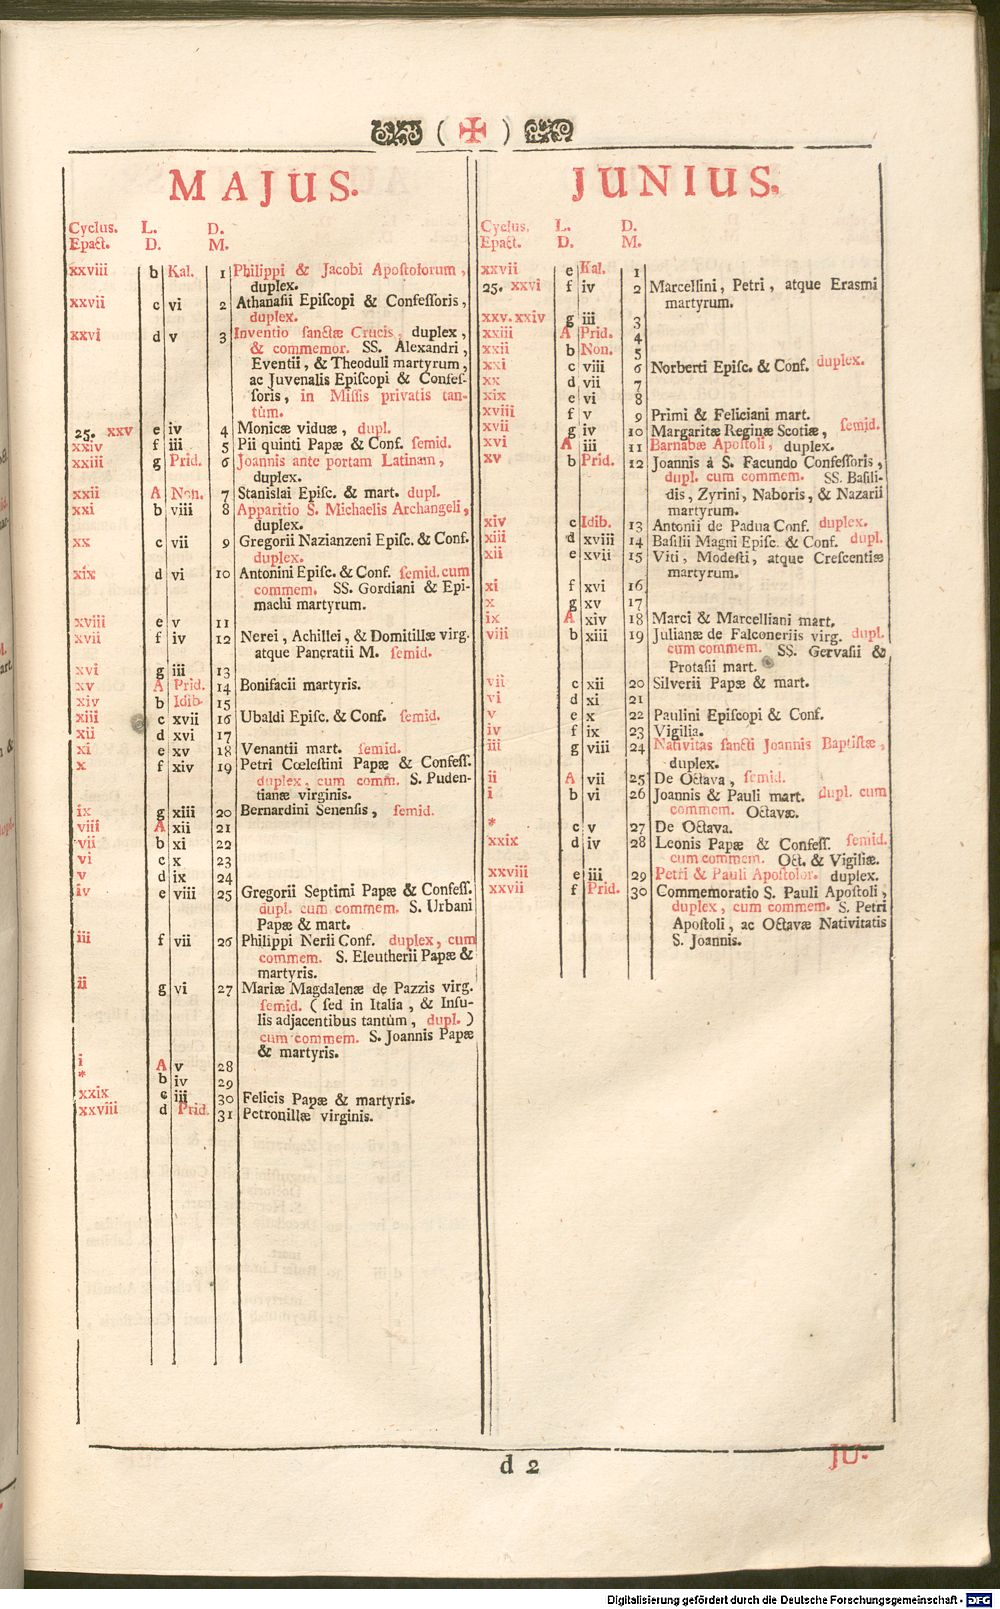 ( ✠ )
MAJUS.
Cyclus. L. D.
Epact. D. M.
xxviii b Kal. 1 Philippi & Jacobi Apoſtolorum,
duplex.
xxvii c vi 2 Athanaſii Epiſcopi & Confeſſoris,
duplex.
xxvi d v 3 Inventio ſanctæ Crucis, duplex,
& commemor. SS. Alexandri,
Eventii, & Theoduli martyrum,
ac Juvenalis Epiſcopi & Confeſ-
ſoris, in Miſſis privatis tan-
tùm.
25. xxv e iv 4 Monicæ viduæ, dupl.
xxiv f iii 5 Pii quinti Papæ & Conf. ſemid.
xxiii g Prid. 6 Joannis ante portam Latinam,
duplex.
xxii A Non. 7 Stanislai Epiſc. & mart. dupl.
xxi b viii 8 Apparitio S. Michaelis Archangeli,
duplex.
xx c vii 9 Gregorii Nazianzeni Epiſc. & Conf.
duplex.
xix d vi 10 Antonini Epiſc. & Conf. ſemid. cum
commem. SS. Gordiani & Epi-
machi martyrum.
xviii e v 11
xvii f iv 12 Nerei, Achillei, & Domitillæ virg.
atque Pancratii M. ſemid.
xvi g iii 13
xv A Prid. 14 Bonifacii martyris.
xiv b Idib. 15
xiii c xvii 16 Ubaldi Epiſc. & Conf. ſemid.
xii d xvi 17
xi e xv 18 Venantii mart. ſemid.
x f xiv 19 Petri Cœleſtini Papæ & Confeſſ.
duplex, cum comm. S. Puden-
tianæ virginis.
ix g xiii 20 Bernardini Senenſis, ſemid.
viii A xii 21
vii b xi 22
vi c x 23
v d ix 24
iv e viii 25 Gregorii Septimi Papæ & Confeſſ.
dupl. cum commem. S. Urbani
Papæ & mart.
iii f vii 26 Philippi Nerii Conf. duplex, cum
commem. S. Eleutherii Papæ &
martyris.
ii g vi 27 Mariæ Magdalenæ de Pazzis virg.
ſemid. (ſed in Italia, & Inſu-
lis adjacentibus tantùm, dupl.)
cum commem. S. Joannis Papæ
& martyris.
i A v 28
* b iv 29
xxix c iii 30 Felicis Papæ & martyris.
xxviii d Prid. 31 Petronillæ virginis.
JUNIUS.
Cyclus. L. D.
Epact. D. M.
xxvii e Kal. 1
25. xxvi f iv 2 Marcellini, Petri, atque Erasmi
martyrum.
xxv. xxiv g iii 3
xxiii A Prid. 4
xxii b Non. 5
xxi c viii 6 Norberti Epiſc. & Conf. duplex.
xx d vii 7
xix e vi 8
xviii f v 9 Primi & Feliciani mart.
xvii g iv 10 Margaritæ Reginæ Scotiæ, ſemid.
xvi A iii 11 Barnabæ Apoſtoli, duplex.
xv b Prid. 12 Joannis à S. Facundo Confeſſoris,
dupl. cum commem. SS. Baſili-
dis, Zyrini, Naboris, & Nazarii
martyrum.
xiv c Idib. 13 Antonii de Padua Conf. duplex.
xiii d xviii 14 Baſilii Magni Epiſc. & Conf. dupl.
xii e xvii 15 Viti, Modeſti, atque Creſcentiæ
martyrum.
xi f xvi 16
x g xv 17
ix A xiv 18 Marci & Marcelliani mart.
viii b xiii 19 Julianæ de Falconeriis virg. dupl.
cum commem. SS. Gervaſii &
Protaſii mart.
vii c xii 20 Silverii Papæ & mart.
vi d xi 21
v e x 22 Paulini Epiſcopi & Conf.
iv f ix 23 Vigilia.
iii g viii 24 Nativitas ſancti Joannis Baptiſtæ,
duplex.
ii A vii 25 De Octava, ſemid.
i b vi 26 Joannis & Pauli mart. dupl. cum
commem. Octavæ.
* c v 27 De Octava.
xxix d iv 28 Leonis Papæ & Confeſſ. ſemid.
cum commem. Oct. & Vigiliæ.
xxviii e iii 29 Petri & Pauli Apoſtolor. duplex.
xxvii f Prid. 30 Commemoratio S. Pauli Apoſtoli,
duplex, cum commem. S. Petri
Apoſtoli, ac Octavæ Nativitatis
S. Joannis.
d 2
JU-
Digitalisierung gefördert durch die Deutsche Forschungsgemeinschaft - DFG